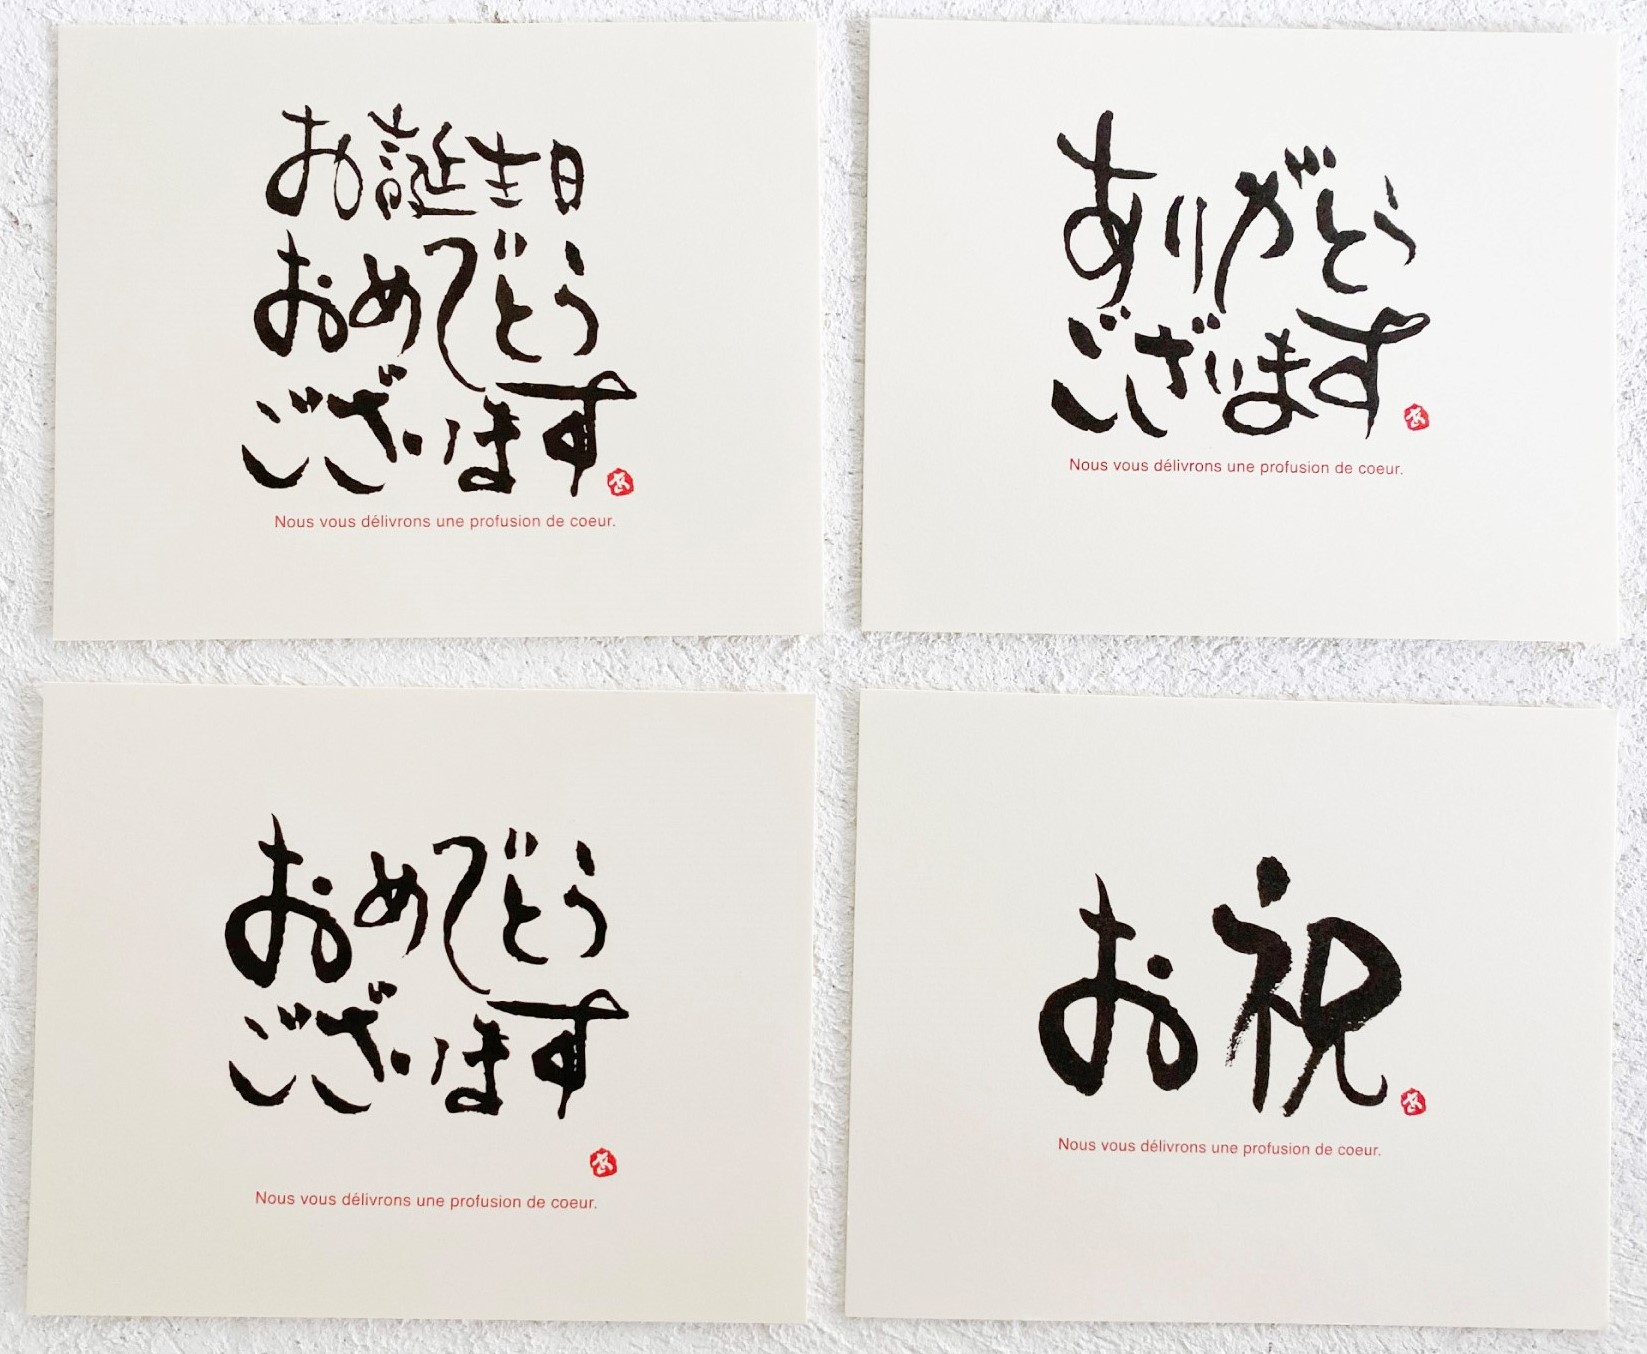 お誕生日
おめでとう
ございます
あ
Nous vous délivrons une profusion de coeur.
ありがとう
ございます
あ
Nous vous délivrons une profusion de coeur.
おめでとう
ございます
あ
Nous vous délivrons une profusion de coeur.
お祝
あ
Nous vous délivrons une profusion de coeur.